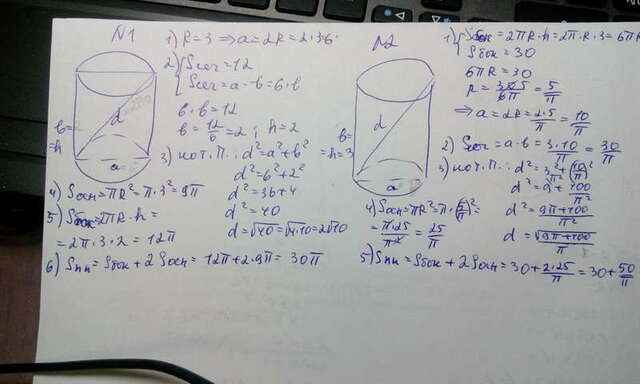 N1
1) R = 3 ⇒ a = 2R = 2·3 6
2) { Sсеч = 12
Sсеч = a·b = 6·b
6·b = 12
b = 12/6 = 2 ; h = 2
d
b =
= h
a
3) по т. П.: d² = a² + b²
d² = 6² + 2²
d² = 36 + 4
d² = 40
d = √40 = √4·10 = 2√10
4) Sосн = πR² = π·3² = 9π
5) Sбок = 2πR·h =
= 2π·3·2 = 12π
6) Sпп = Sбок + 2Sосн = 12π + 2·9π = 30π
N2
1) { Sбок = 2πR·h = 2π·R·3 = 6πR
Sбок = 30
6πR = 30
R = 30 5/6π = 5/π
⇒ a = 2R = 2·5/π = 10/π
d
b =
= h = 3
a
2) Sсеч = a·b = 3·10/π = 30/π
3) по т. П.: d² = 3² + (10/π)²
d² = 9 + 100/π²
d² = 9π + 100/π²
d = √9π + 100/π
4) Sосн = πR² = π·(5/π)² =
= π·25/π² = 25/π
5) Sпп = Sбок + 2Sосн = 30 + 2·25/π = 30 + 50/π